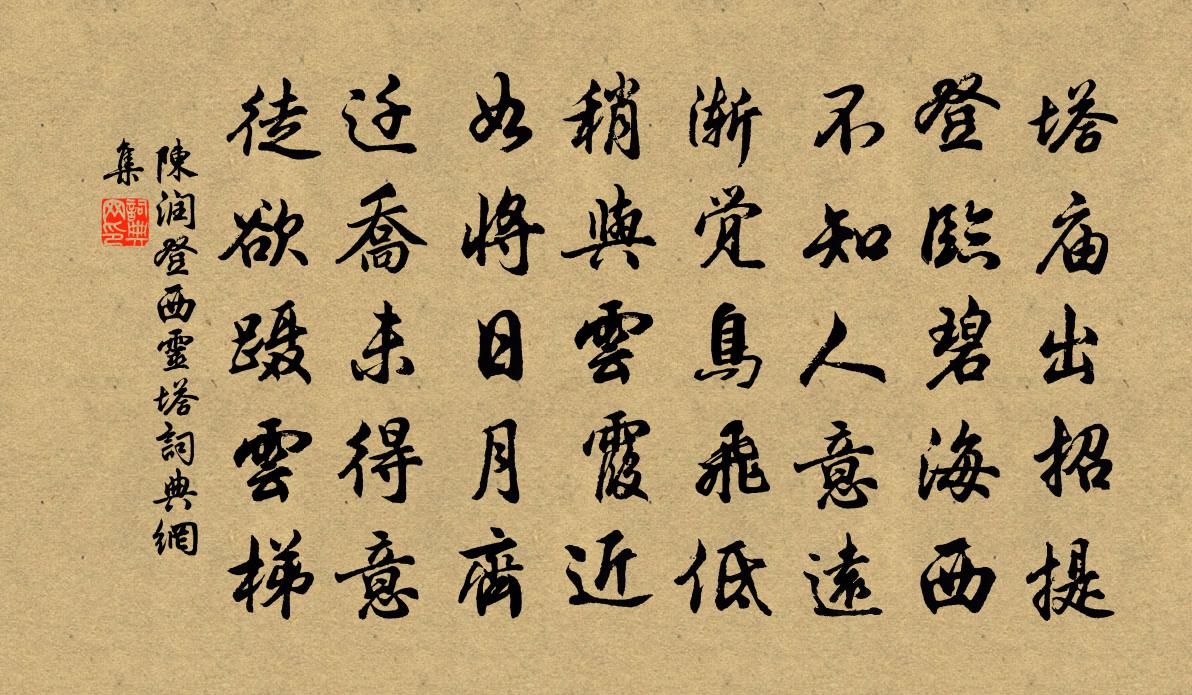 塔庙出招提
登臨碧海西
不知人意遠
渐觉鳥飛低
稍與雲霞近
如將日月齊
迁喬未得意
徒欲蹑雲梯
陳润登西靈塔詞典網
集
詞典
网印